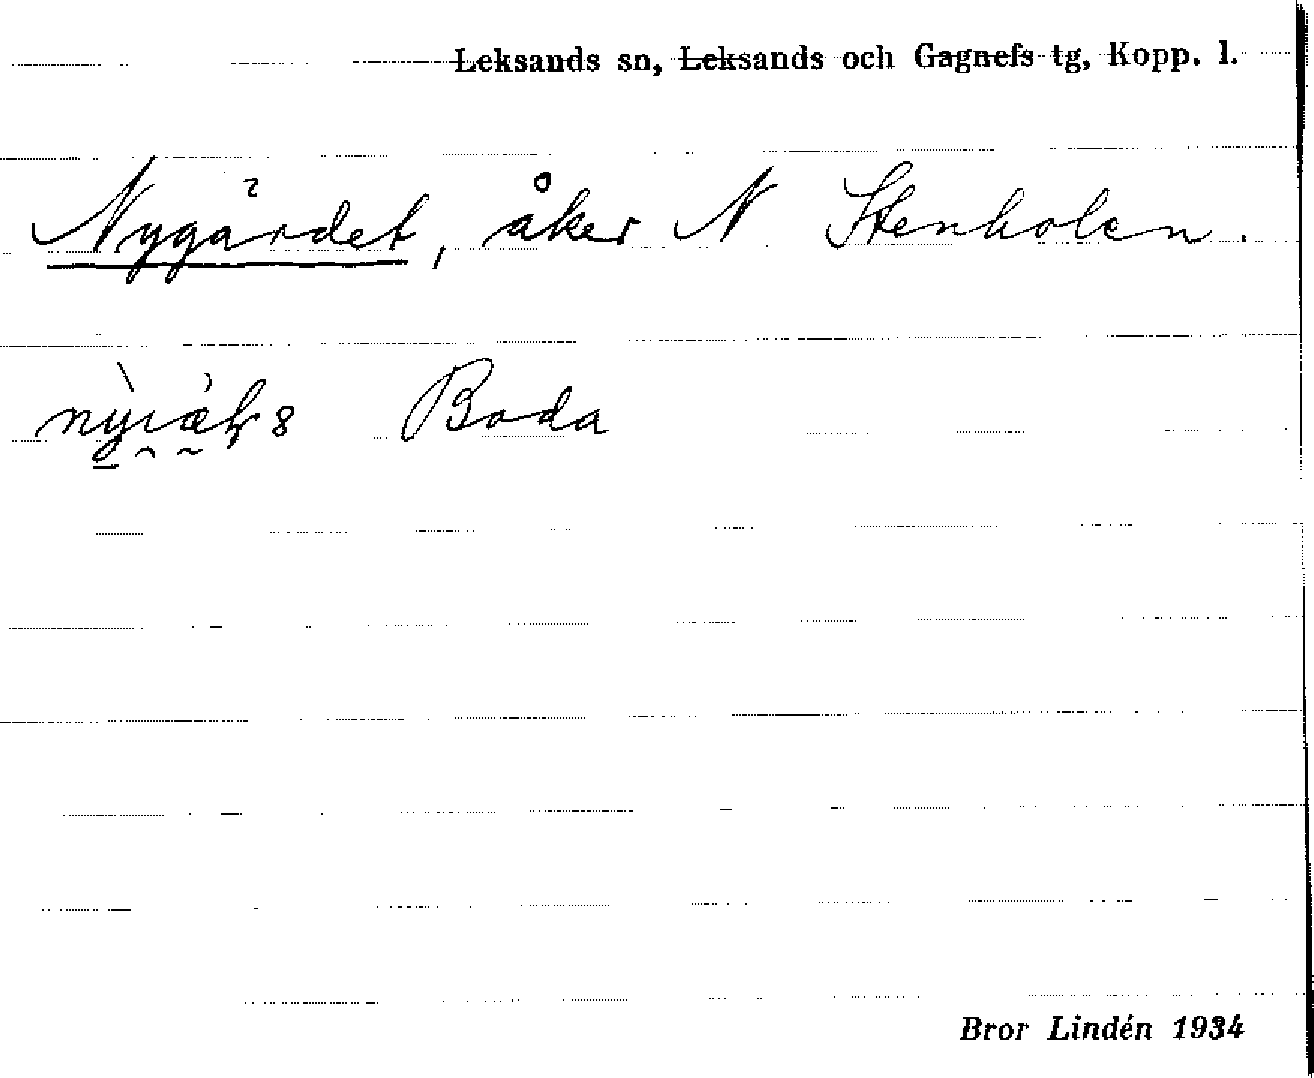 Leksands sn, Leksands och Gagnefs tg, Kopp. l.
Nygärdet, åker N Stenholen.
Boda
Bror Lindén 1934